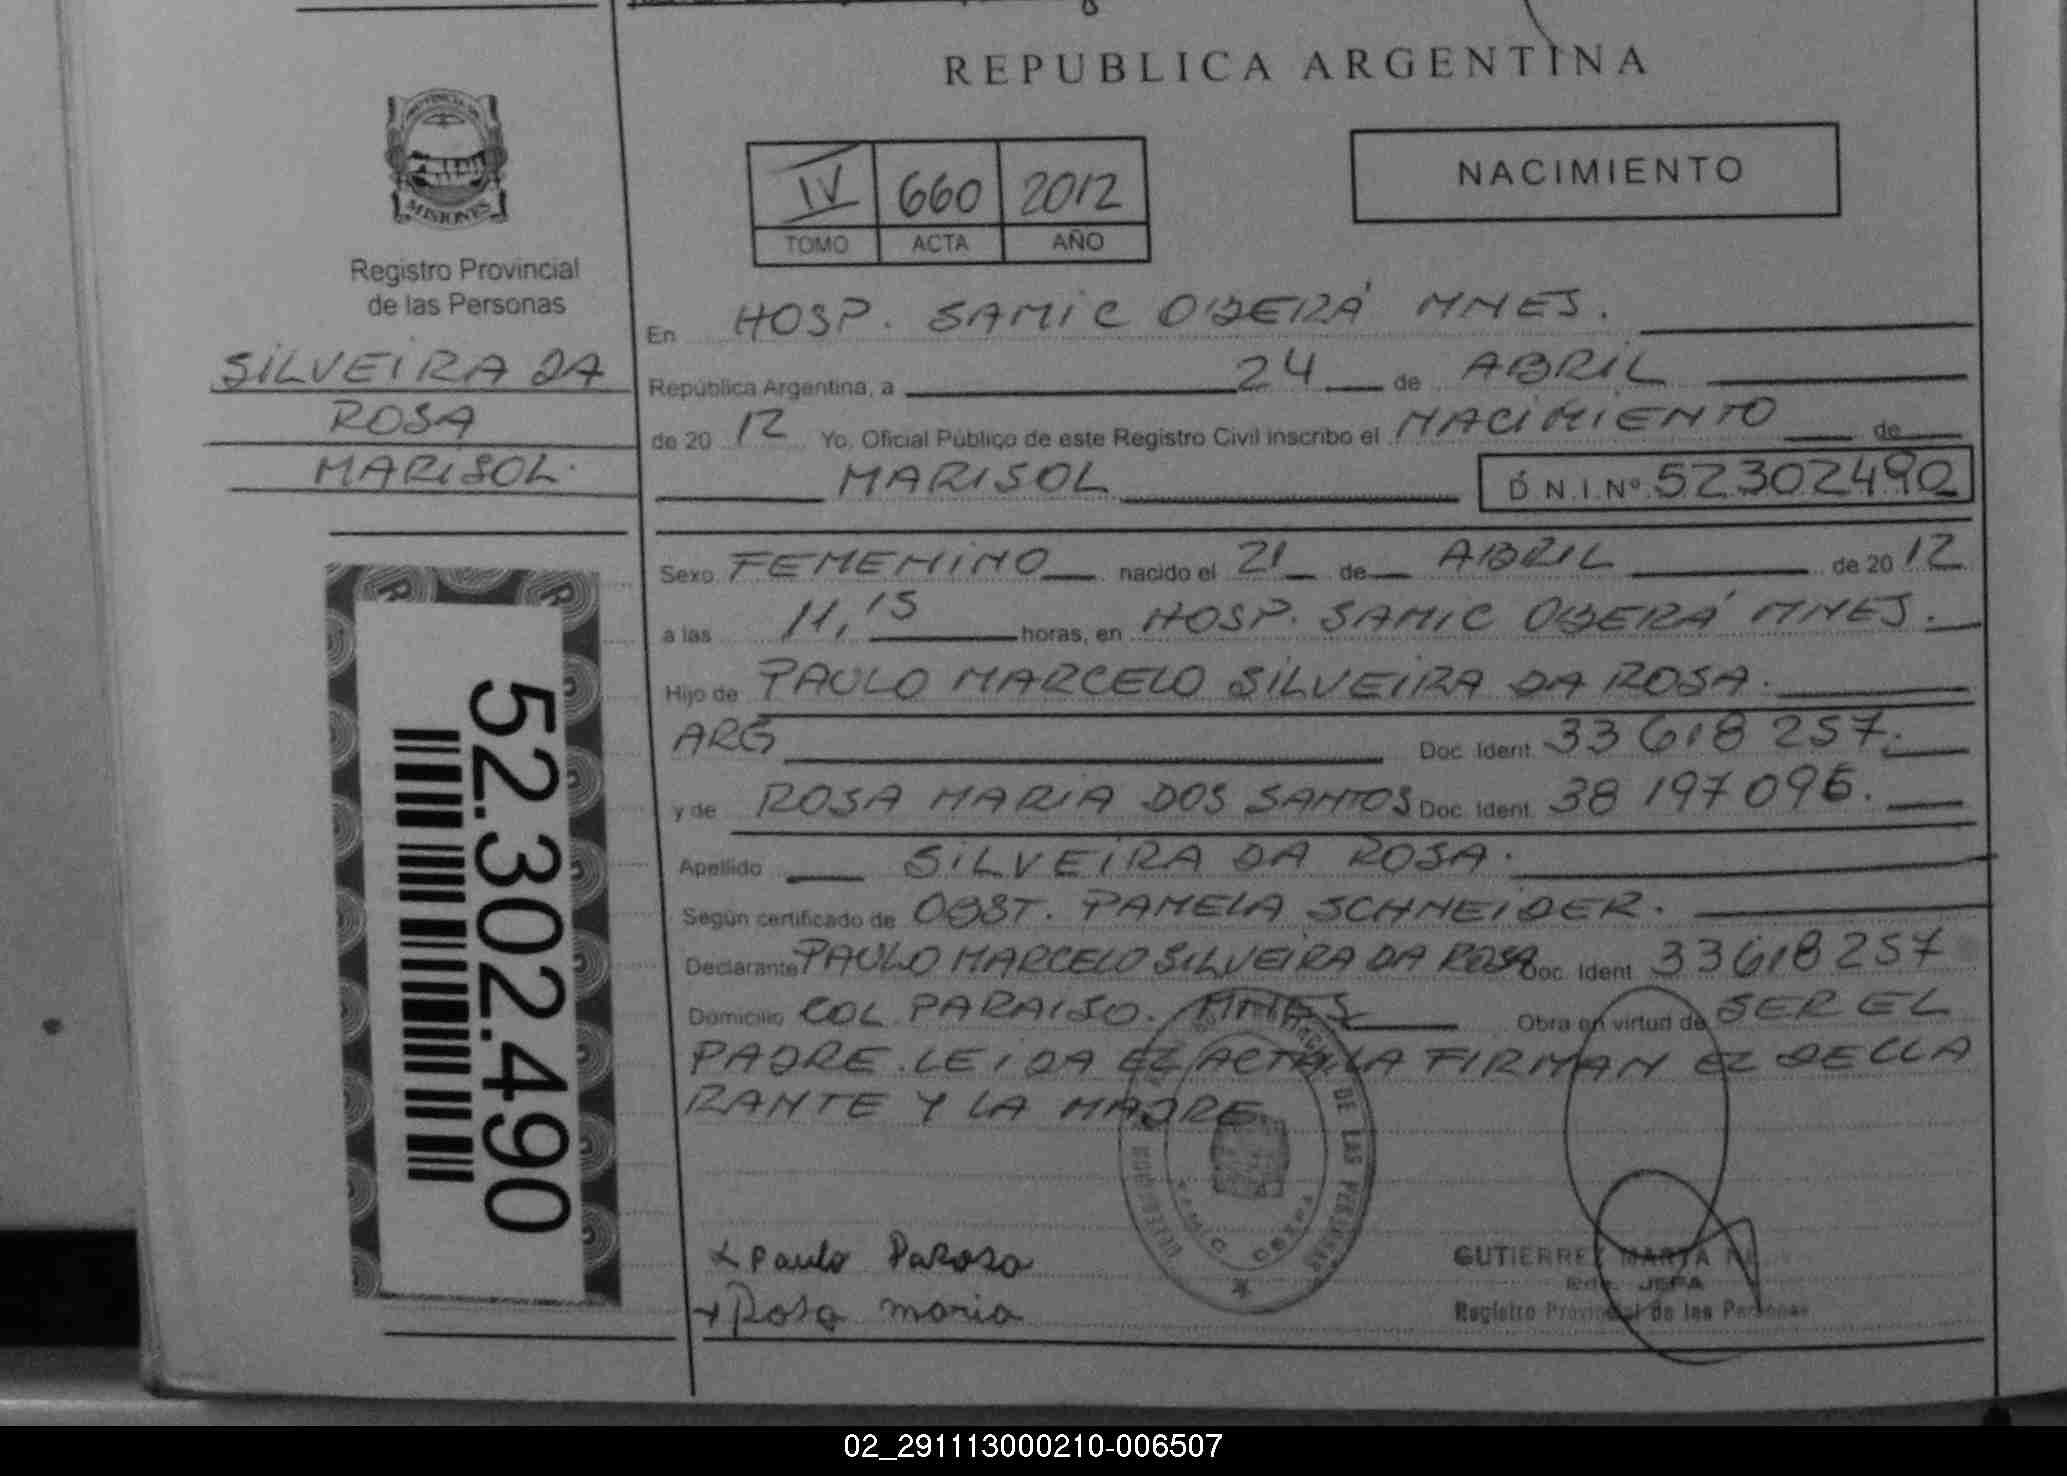 REPUBLICA ARGENTINA
PROVINCIA DE
MISIONES
Registro Provincial
de las Personas
SILVEIRA DA
ROSA
MARISOL.
52.302.490
IV 660 2012
TOMO ACTA AÑO
NACIMIENTO
En HOSP. SAMIC OBERÁ MNES.
República Argentina, a 24 de ABRIL
de 20 12 Yo, Oficial Público de este Registro Civil inscribo el NACIMIENTO de
MARISOL D.N.I.Nº 52302490
Sexo FEMENINO nacido el 21 de ABRIL de 20 12
a las 11,15 horas, en HOSP. SAMIC OBERÁ MNES.
Hijo de PAULO MARCELO SILVEIRA DA ROSA.
ARG Doc. Ident. 33 618 257.
y de ROSA MARIA DOS SANTOS Doc. Ident. 38 197 096.
Apellido SILVEIRA DA ROSA.
Según certificado de OBST. PAMELA SCHNEIDER.
Declarante PAULO MARCELO SILVEIRA DA ROSA Doc. Ident. 33618257
Domicilio COL. PARAISO. MNES Obra en virtud de SER EL
PADRE. LEIDA EL ACTA LA FIRMAN EL DECLA
RANTE Y LA MADRE.
DE LAS PERSONAS
x Paulo Darosa
x Rosa maria
GUTIERREZ MARTA
JEFA
Registro Provincial de las Personas
02_291113000210-006507